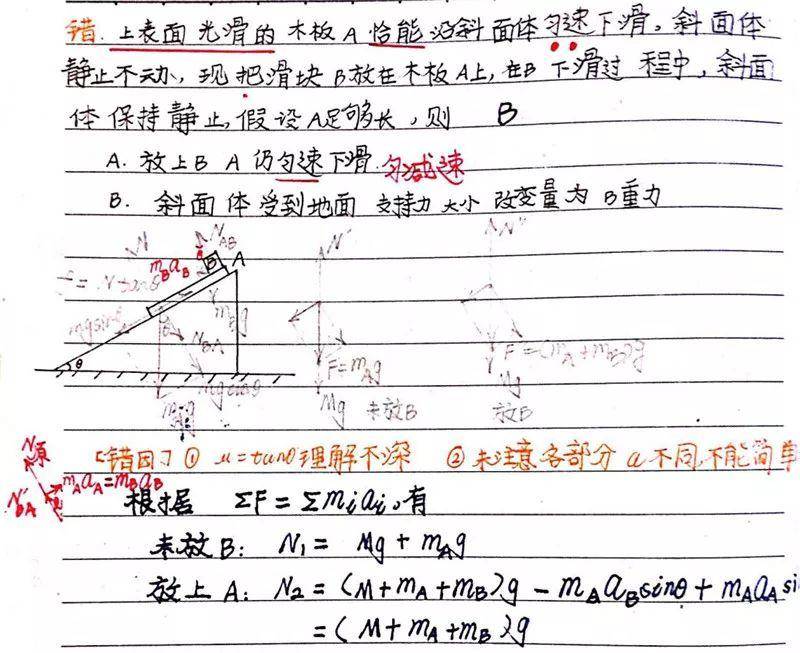 错. 上表面光滑的木板A恰能沿斜面体匀速下滑。斜面体
静止不动、现把滑块B放在木板A上,在B下滑过程中,斜面
体保持静止,假设A足够长,则 B
A. 放上B A仍匀速下滑. 匀减速
B. 斜面体受到地面 支持力大小 改变量为 B重力
N N_AB N' N''
B A
m_B a_B
f = N tanθ
mgsinθ m_B g
θ N_BA F=m_A g F=(m_A+m_B)g
θ mgcosθ Mg 未放B Mg
m_A g 放B
[错因] ① u=tanθ理解不深 ② 未注意各部分 a 不同,不能简单
N原
m_A a_A=m_B a_B
N'_BA
根据 ΣF = Σm_i a_i,有
未放B: N₁ = Mg + m_A g
放上A: N₂ = (M+m_A+m_B)g - m_B a_B sinθ + m_A a_A si
= (M+m_A+m_B)g